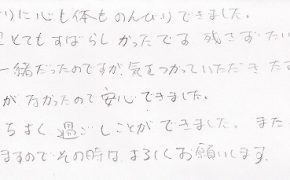 りに心も体ものんびりできました。
とてもすばらしかったです 残さずたい
一緒だったのですが、気をつかっていただきたす
が方かったので安心できました。
ちよく過ごしことができました。また
ますのでその時は、よろしくお願いします。